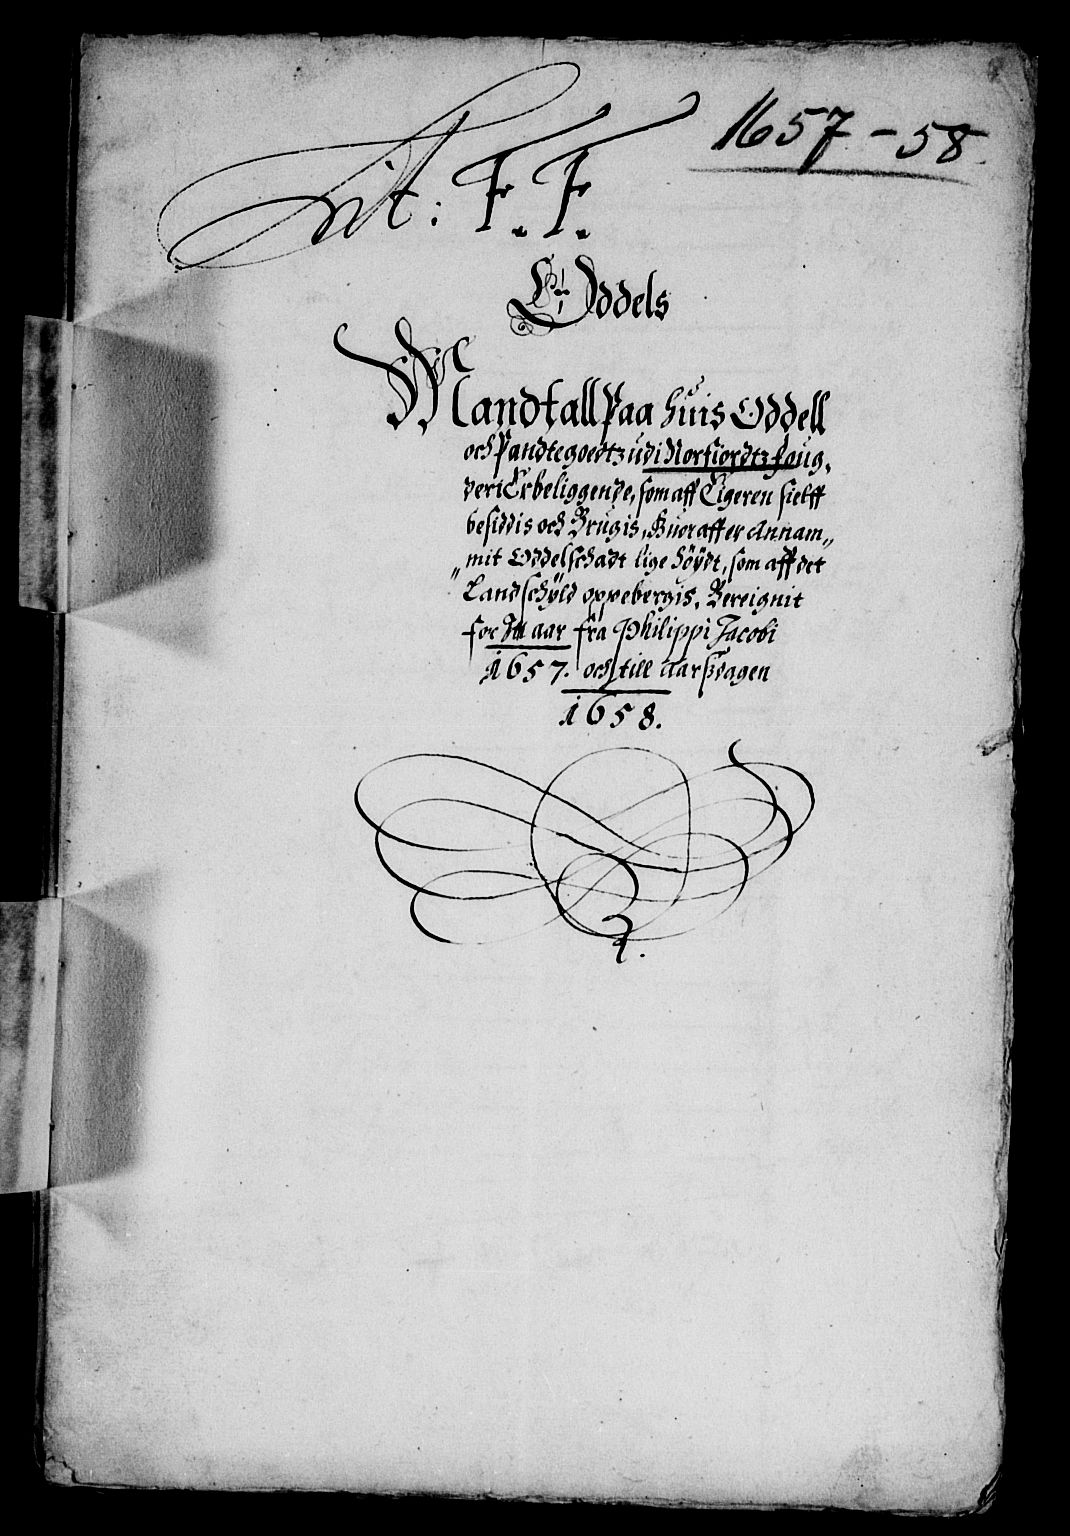 1657-58
Lit: F. F.
Et Oddels
Mandtall Paa huis Oddell
och Pandtegoedtz udi Norfiordtz foug,
deri Erbeliggende, som aff Eigeren sielff
besiddis och Brugis, Huor aff er Annam„
„mit Oddelschadt lige höÿdt, som aff det
Landschÿld oppebergis. Bereignit
for Jtt aar fra Philippi Jacobi
1657. och till aarszdagen
1658.